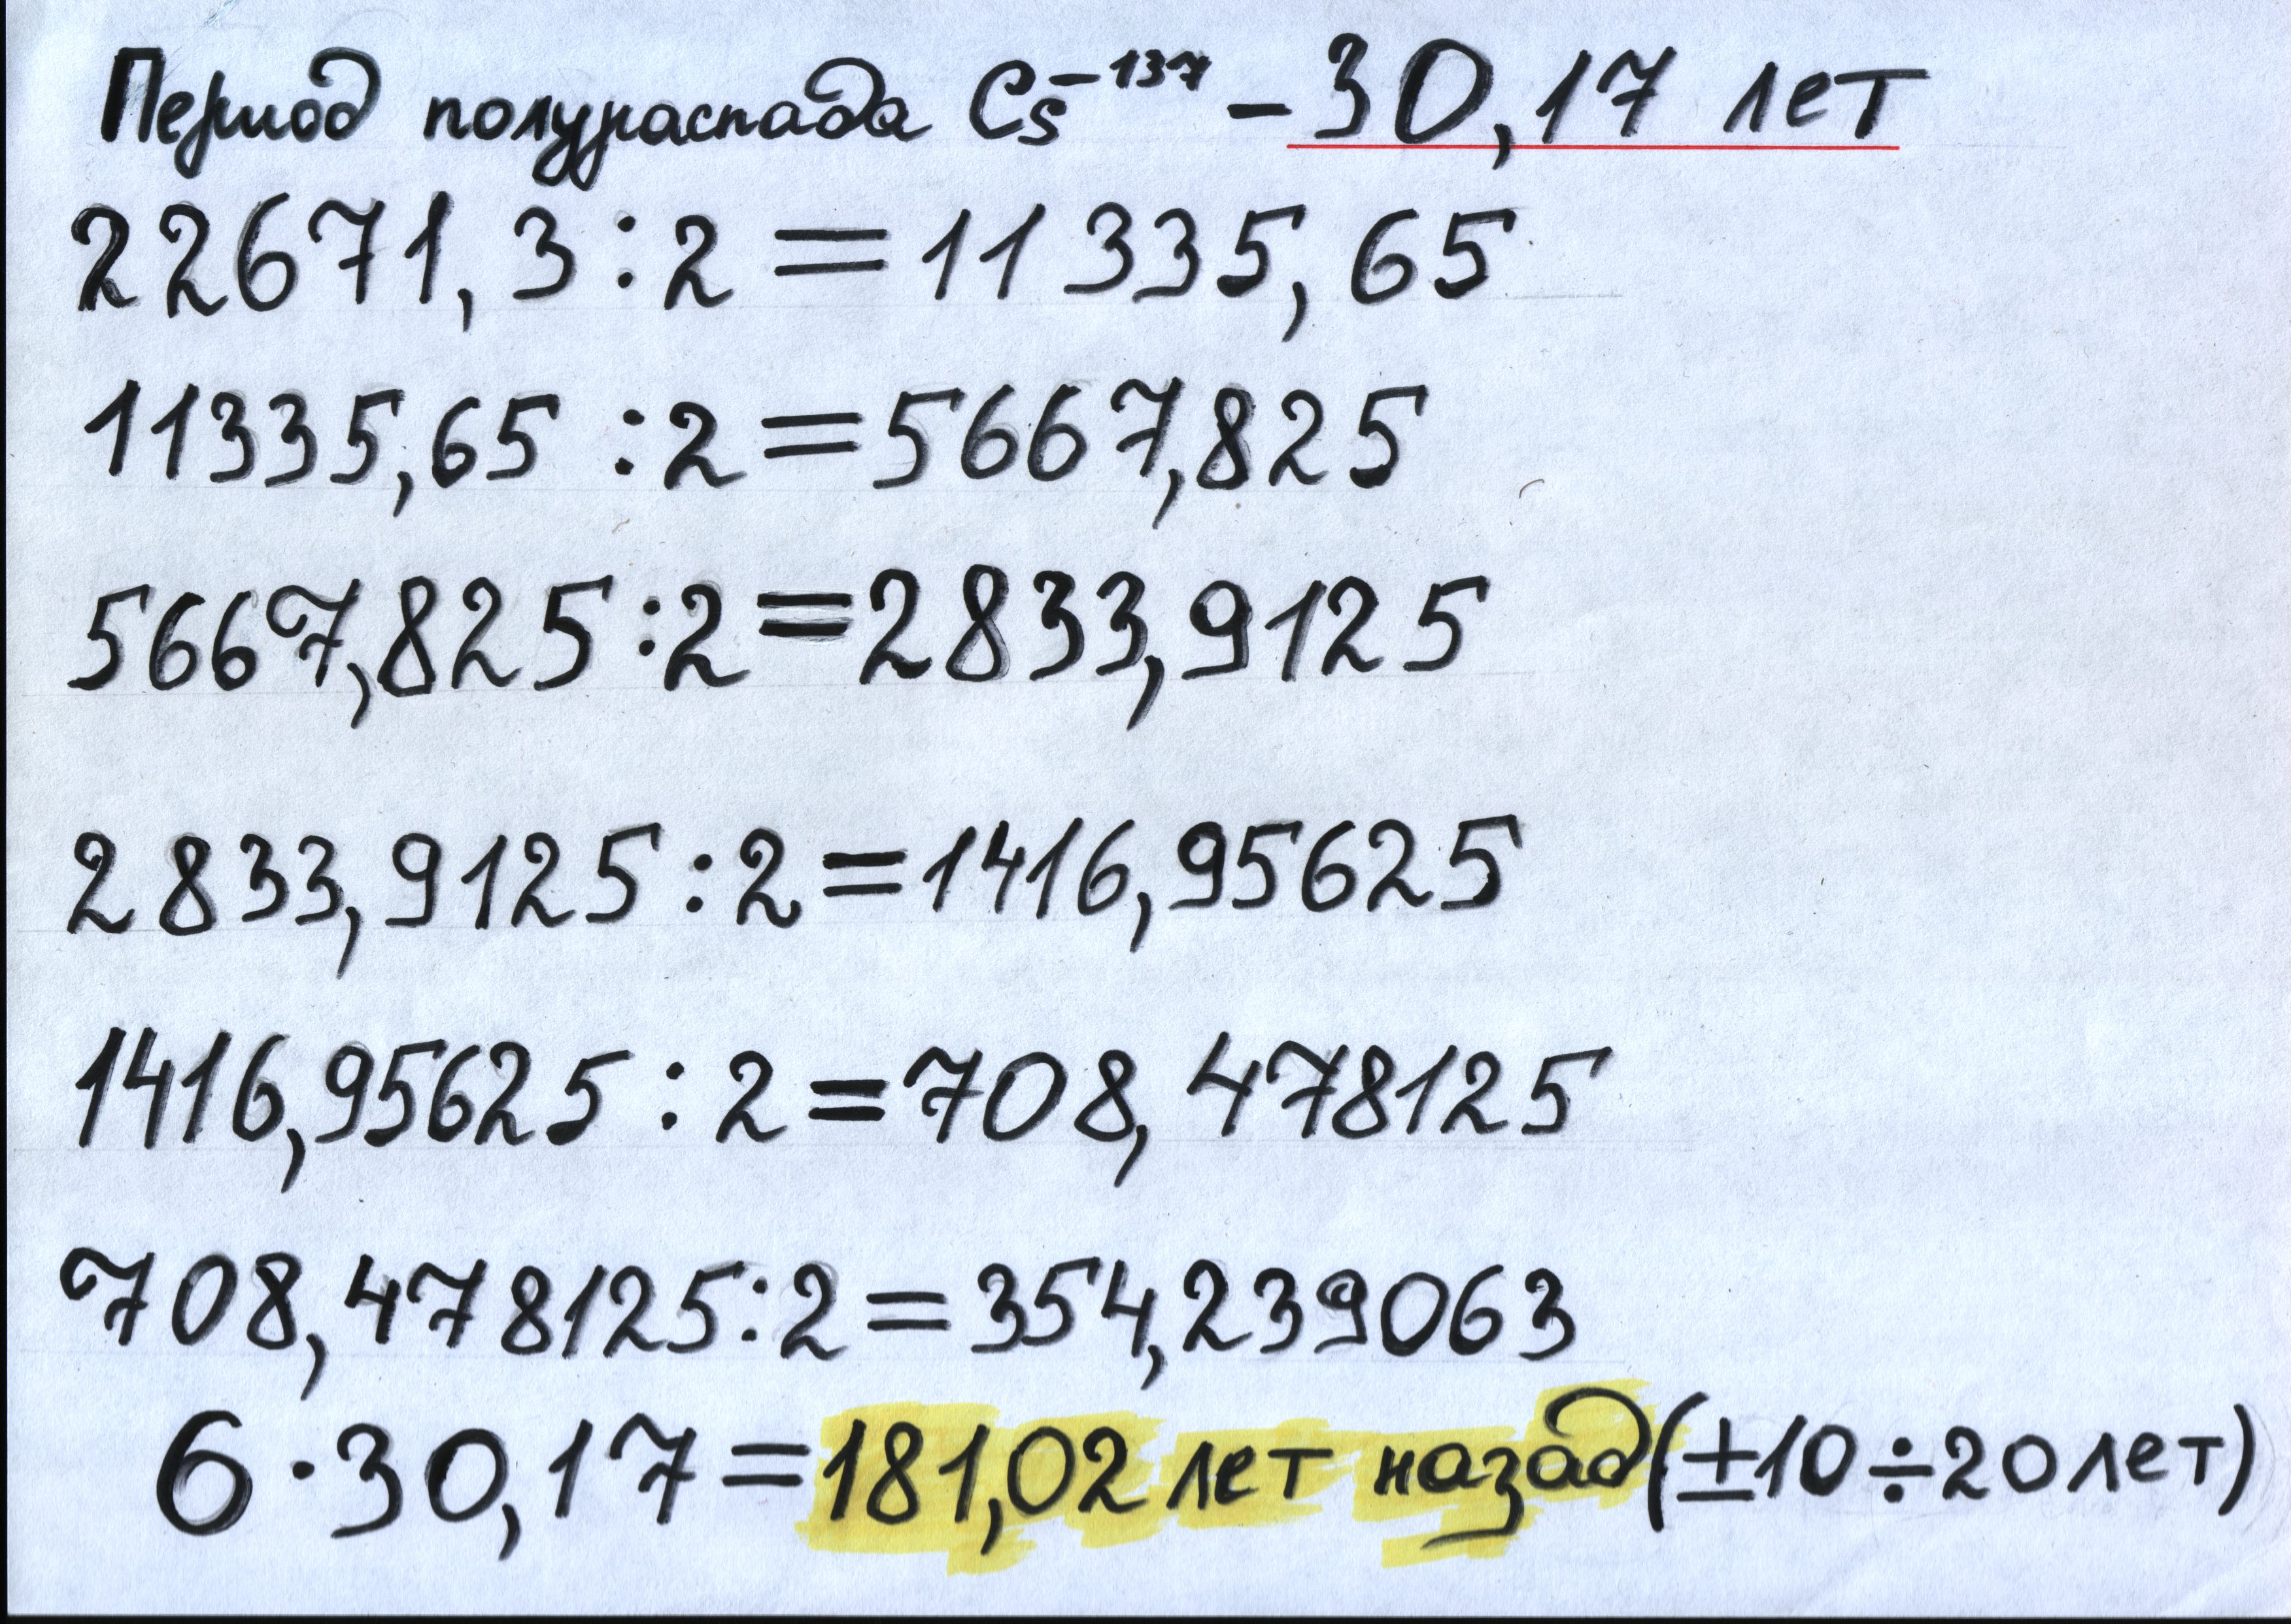 Период полураспада Cs⁻¹³⁷ – 30,17 лет
22671,3 : 2 = 11335,65
11335,65 : 2 = 5667,825
5667,825 : 2 = 2833,9125
2833,9125 : 2 = 1416,95625
1416,95625 : 2 = 708,478125
708,478125 : 2 = 354,239063
6 · 30,17 = 181,02 лет назад (±10 ÷ 20 лет)